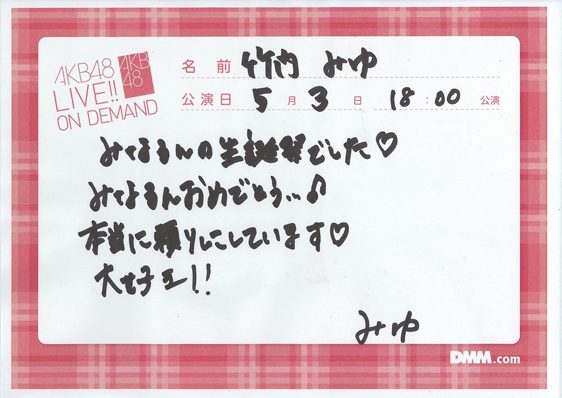 AKB48
LIVE!!
ON DEMAND
AKB
48
名前 竹内 みゆ
公演日 5月3日 18:00 公演
みぃよるんの生誕祭でした♡
みぃよるんおめでとう…♪
本当に頼りにしています♡
大好き!!
みゆ
DMM.com